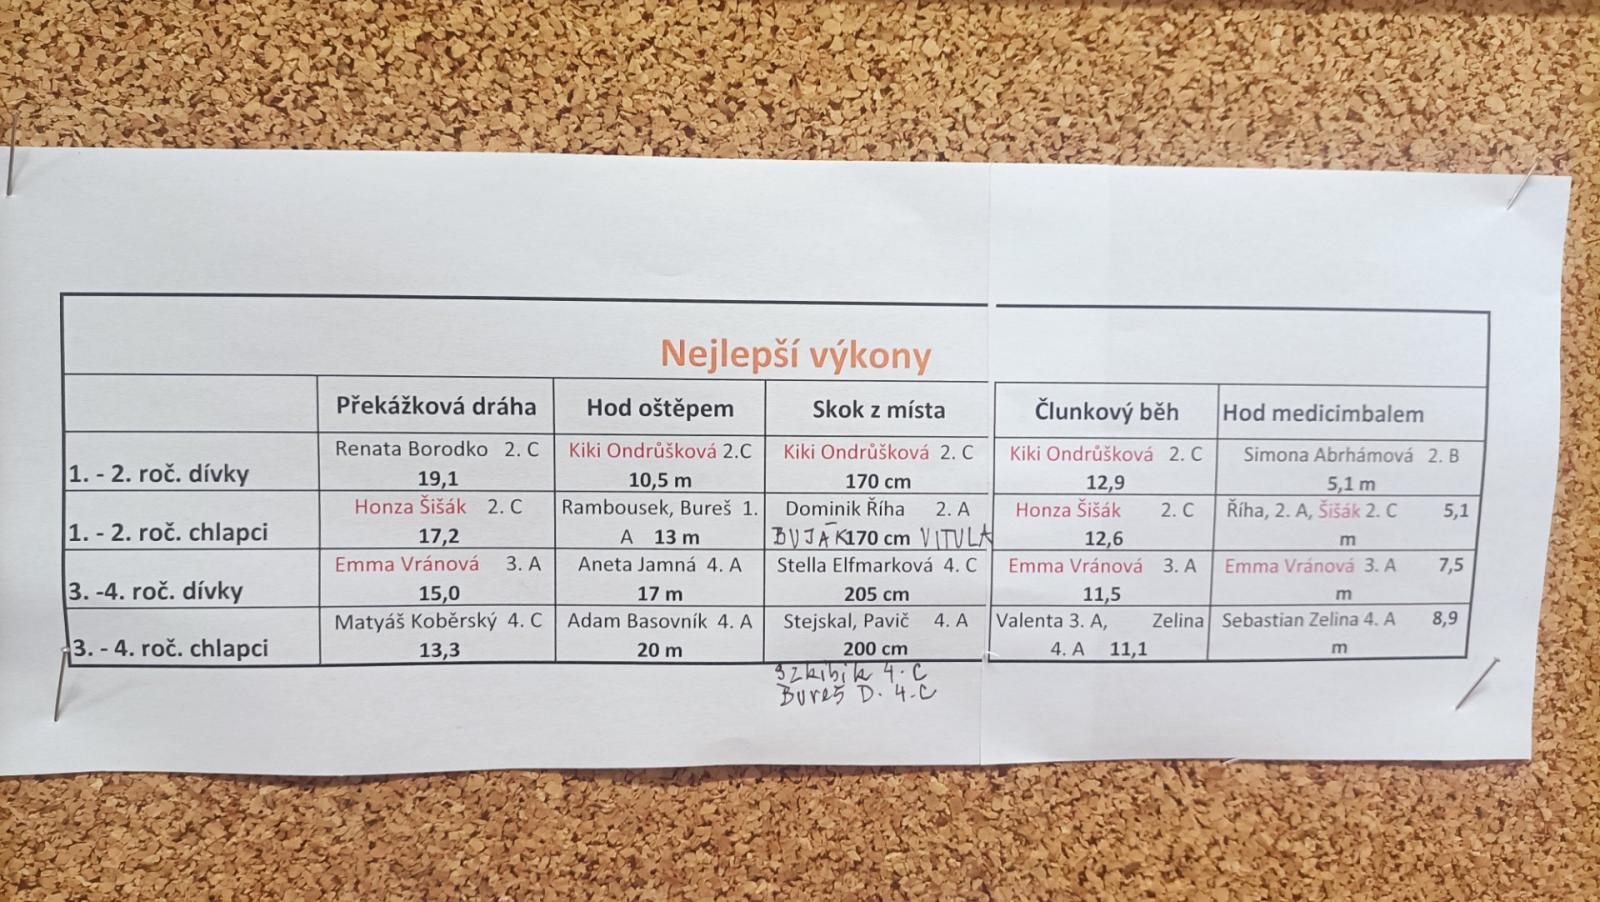 Nejlepší výkony
Překážková dráha Hod oštěpem Skok z místa Člunkový běh Hod medicimbalem
1. - 2. roč. dívky
Renata Borodko 2. C
19,1
Kiki Ondrůšková 2.C
10,5 m
Kiki Ondrůšková 2. C
170 cm
Kiki Ondrůšková 2. C
12,9
Simona Abrhámová 2. B
5,1 m
1. - 2. roč. chlapci
Honza Šišák 2. C
17,2
Rambousek, Bureš 1.
A 13 m
Dominik Říha 2. A
BUJÁK 170 cm VITULA
Honza Šišák 2. C
12,6
Říha, 2. A, Šišák 2. C 5,1
m
3. -4. roč. dívky
Emma Vránová 3. A
15,0
Aneta Jamná 4. A
17 m
Stella Elfmarková 4. C
205 cm
Emma Vránová 3. A
11,5
Emma Vránová 3. A 7,5
m
3. - 4. roč. chlapci
Matyáš Koběrský 4. C
13,3
Adam Basovník 4. A
20 m
Stejskal, Pavič 4. A
200 cm
Szkibik 4.C
Bureš D. 4.C
Valenta 3. A, Zelina
4. A 11,1
Sebastian Zelina 4. A 8,9
m